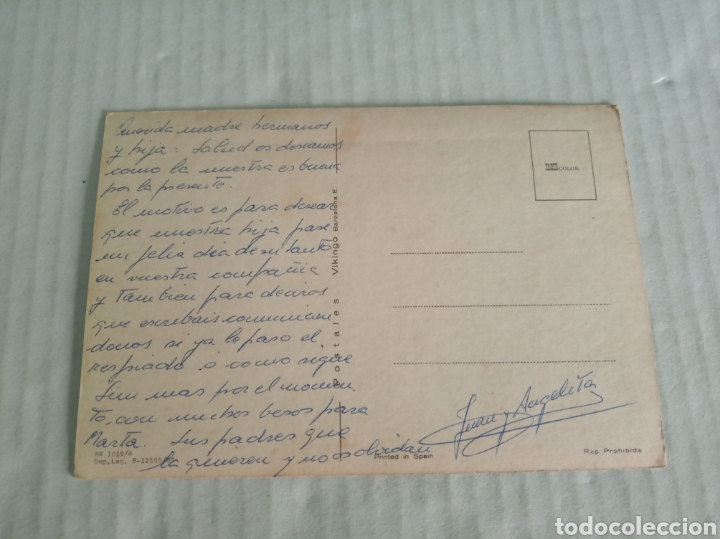 Querida madre hermanos
y hija: Salud os deseamos
como la nuestra es buena
por la presente.
El motivo es para desear
que nuestra hija pase
un feliz dia de su santo
en vuestra compañia
y tambien para deciros
que escribais comunican
donos si ya le paso el
resfriado o como sigue
Sin mas por el momen-
to, con muchos besos para
Marta. Sus padres que
la quieren y no os olvidan
Juan y Angelita
Postales Vikingo Barcelona E.
COLOR
NB 1019/
Dep. Leg. B-12355
Printed in Spain
Rep. Prohibida
todocoleccion